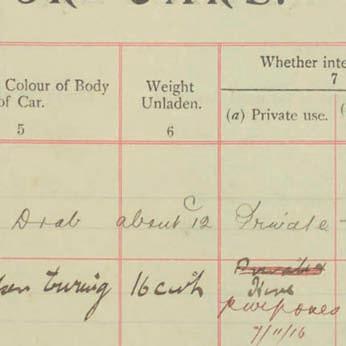 CARS.
Colour of Body
of Car.
5
Weight
Unladen.
6
Whether inte
7
(a) Private use.
(
Drab
about 12 C
Private
turing
16 cwt
Private
Hire
purposes
7/11/16